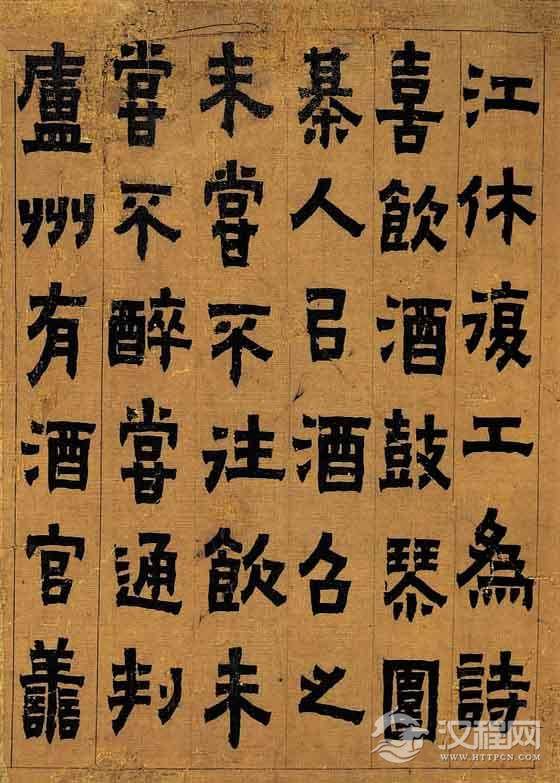 江休復工爲詩
喜飲酒鼓琴圍
棊人㠯酒召之
未嘗不往飲未
嘗不醉嘗通判
廬州有酒官善
汉程网
WWW.HTTPCN.COM